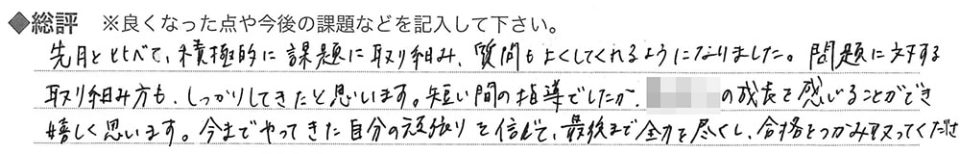 ◆総評 ※良くなった点や今後の課題などを記入して下さい。
先月とくらべて、積極的に課題に取り組み、質問もよくしてくれるようになりました。問題に対する
取り組み方も、しっかりしてきたと思います。短い間の指導でしたが、の成長を感じることができ
嬉しく思います。今までやってきた自分の頑張りを信じて、最後まで全力を尽くし、合格をつかみ取ってくださ